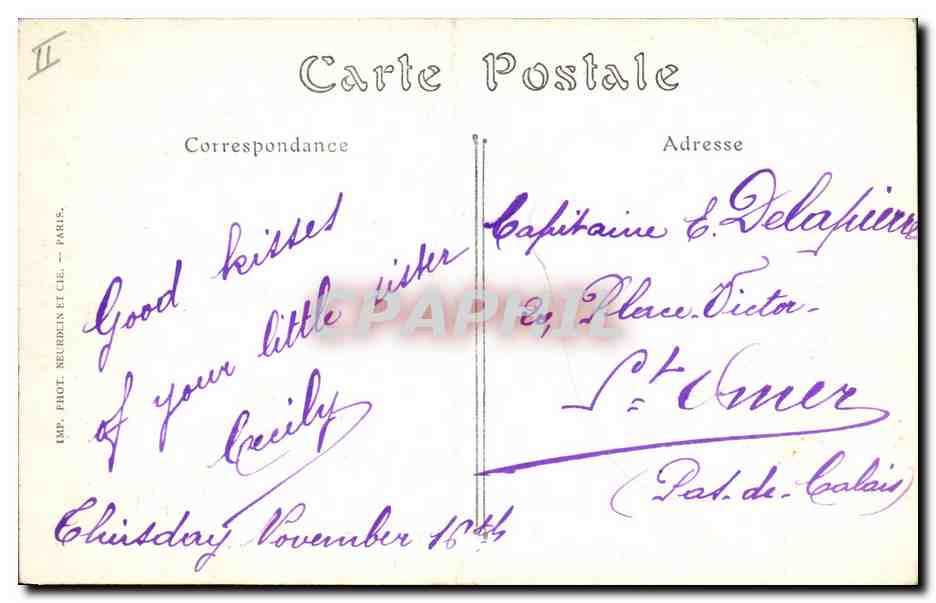 II
Carte Postale
Correspondance
Adresse
IMP. PHOT. NEURDEIN ET CIE. — PARIS.
Good kisses
of your little sister
Cecily
Thirsday November 16th
Capitaine E. Delapierre
20, Place Victor-
St. Omer
(Pas-de-Calais)
CPAPHIL